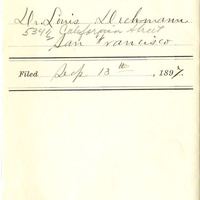 Dr. Louis Dechmann
534½ California Street
San Francisco
Filed Sep. 13th, 1897.